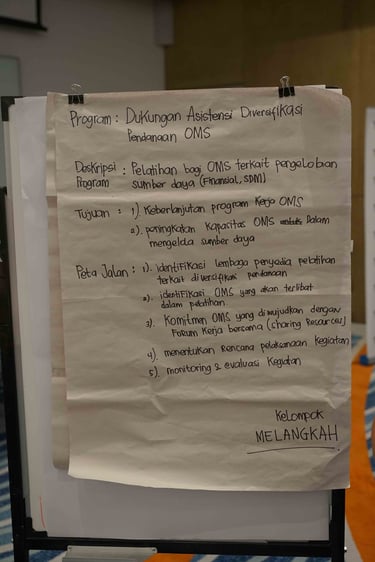 Program : Dukungan Asistensi Diversifikasi
Pendanaan OMS
Deskripsi : Pelatihan bagi OMS terkait pengelolaan
Program sumber daya (Finansial, SDM)
Tujuan : 1). Keberlanjutan program kerja OMS
2). peningkatan kapasitas OMS dalam
mengelola sumber daya
Peta Jalan : 1). identifikasi lembaga penyedia pelatihan
terkait diversifikasi pendanaan
2). identifikasi OMS yang akan terlibat
dalam pelatihan
3). Komitmen OMS yang diwujudkan dengan
Forum Kerja bersama (sharing Resources)
4). menentukan Rencana pelaksanaan kegiatan
5). monitoring & evaluasi kegiatan
Kelompok
MELANGKAH